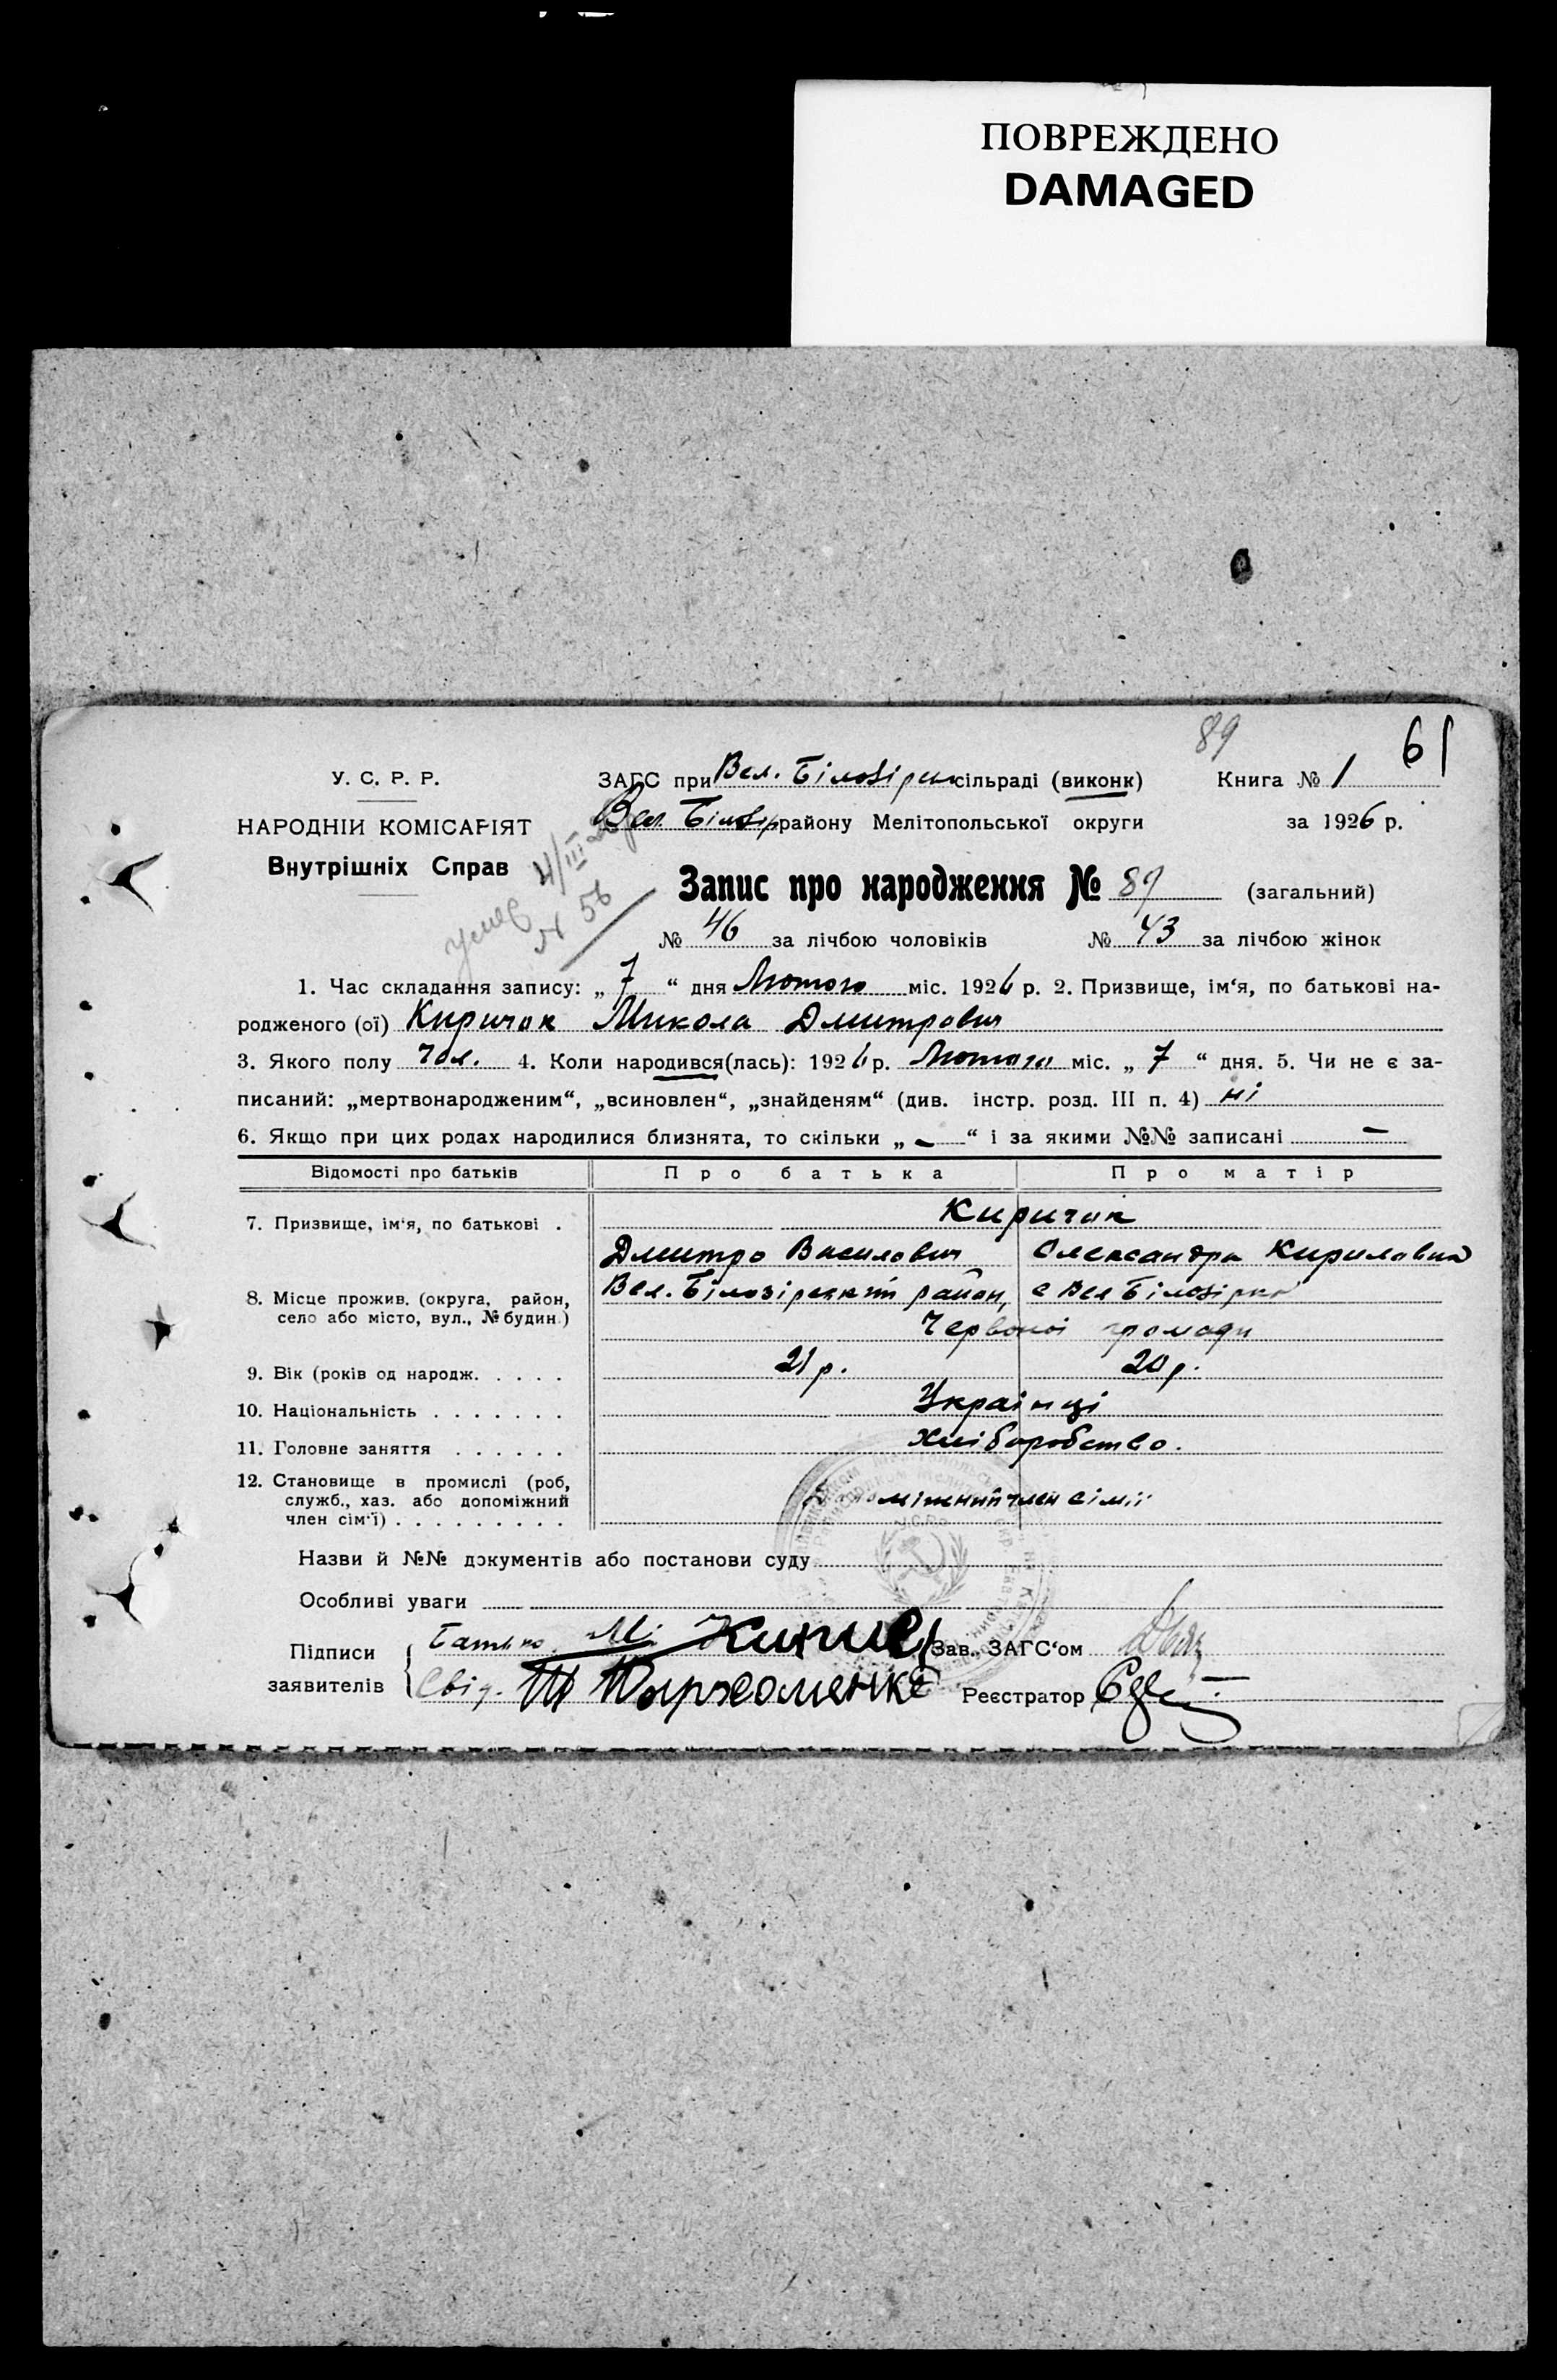 ПОВРЕЖДЕНО
DAMAGED
89 61
У. С. Р. Р.
ЗАГС при Вел. Білозірск сільраді (виконк) Книга № 1
НАРОДНІЙ КОМІСАРІЯТ
Вел. Білозір району Мелітопольської округи за 1926 р.
Внутрішніх Справ
умер 4/III
№ 56
Запис про народження № 89 (загальний)
№ 46 за лічбою чоловіків № 43 за лічбою жінок
1. Час складання запису: „ 7 “ дня Лютого міс. 1926 р. 2. Призвище, ім‘я, по батькові на-
родженого (ої) Киричок Микола Дмитрович
3. Якого полу чол. 4. Коли народився(лась): 1926 р. Лютого міс. „ 7 “ дня. 5. Чи не є за-
писаний: „мертвонародженим“, „всиновлен“, „знайденям“ (див. інстр. розд. III п. 4) ні
6. Якщо при цих родах народилися близнята, то скільки „ – “ і за якими №№ записані –
Відомості про батьків Про батька Про матір
7. Призвище, ім‘я, по батькові . Киричок
Дмитро Василович Олександра Кириловна
8. Місце прожив. (округа, район, Вел. Білозірский район, с Вел Білозірка
село або місто, вул., № будин.) Червоної громади
9. Вік (років од народж. . . . . 21 р. 20 р.
10. Національність . . . . . . . Українці
11. Головне заняття . . . . . . хліборобство.
12. Становище в промислі (роб,
служб., хаз. або допоміжний Допоміжний член сімії
член сім‘ї) . . . . . . . . .
Назви й №№ документів або постанови суду
Особливі уваги
Підписи Батько Зав. ЗАГС‘ом
заявителів Свід. Пархоменко Реєстратор